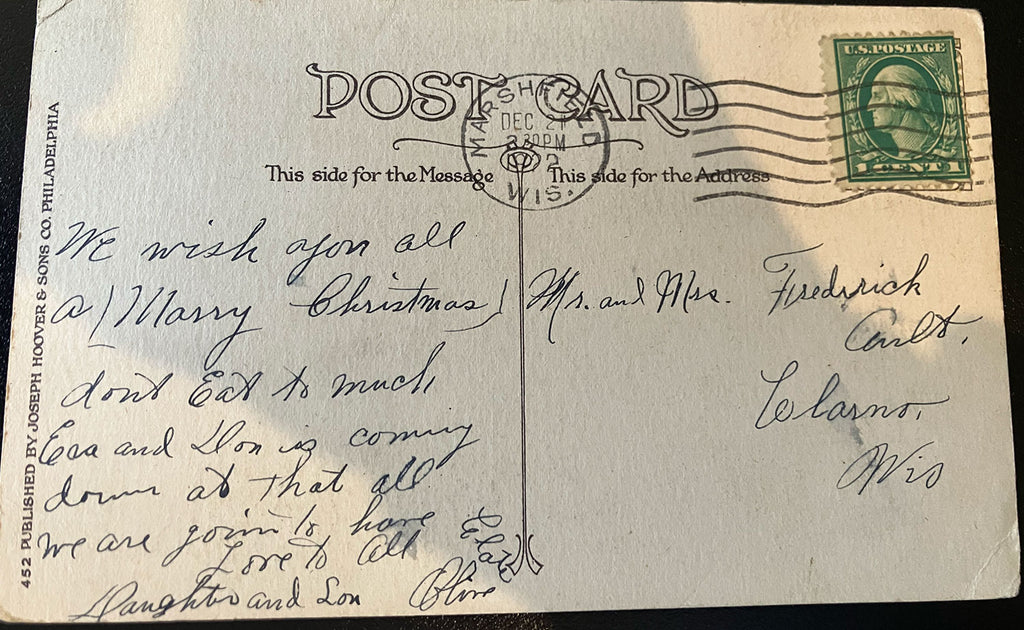 POST CARD
MARSHFIELD
DEC 21
30PM
WIS.
U.S.POSTAGE
1 CENT 1
This side for the Message
This side for the Address
452 PUBLISHED BY JOSEPH HOOVER & SONS CO. PHILADELPHIA
We wish you all
a (Marry Christmas)
dont Eat to much
Eva and Don is coming
down at that all
we are goin to have
Love to All
Daughter and Son
Olive
Mr. and Mrs. Frederick
Clarno,
Wis